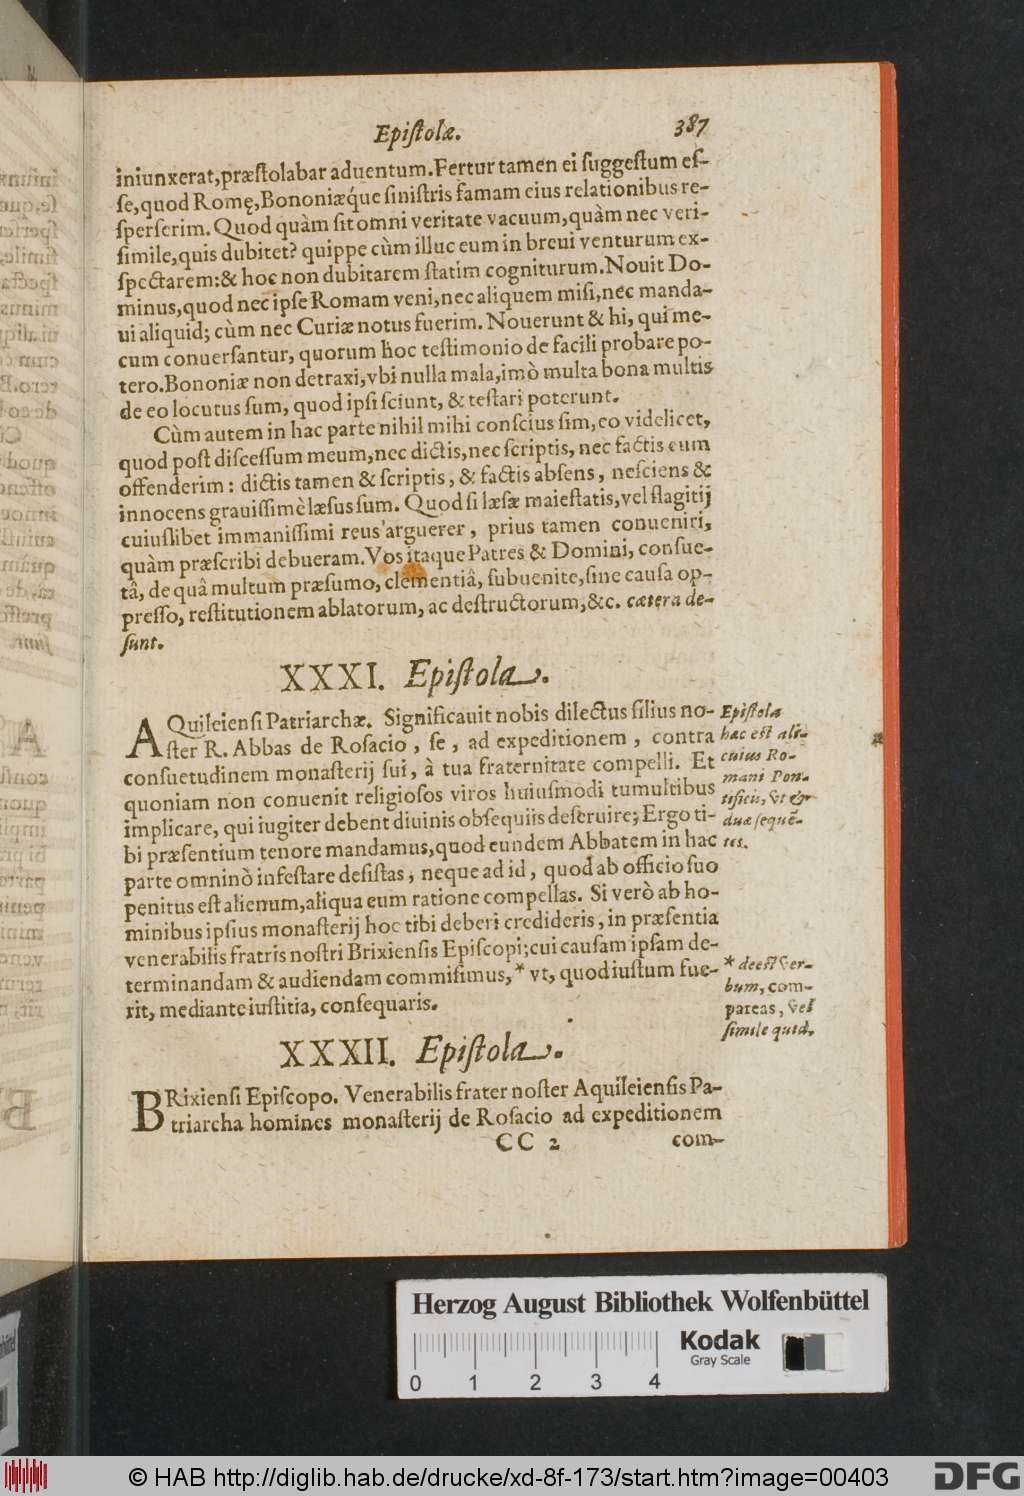 Epiſtolæ. 387
iniunxerat,præſtolabar aduentum.Fertur tamen ei ſuggeſtum eſ-
ſe,quod Romę,Bononiæq́ue ſiniſtris famam eius relationibus re-
ſperſerim. Quod quàm ſit omni veritate vacuum,quàm nec veri-
ſimile,quis dubitet? quippe cùm illuc eum in breui venturum ex-
ſpectarem:& hoc non dubitarem ſtatim cogniturum.Nouit Do-
minus,quod nec ipſe Romam veni,nec aliquem miſi,nec manda-
ui aliquid; cùm nec Curiæ notus fuerim. Nouerunt & hi, qui me-
cum conuerſantur, quorum hoc teſtimonio de facili probare po-
tero.Bononiæ non detraxi,vbi nulla mala,imò multa bona multis
de eo locutus ſum, quod ipſi ſciunt, & teſtari poterunt.
Cùm autem in hac parte nihil mihi conſcius ſim,eo videlicet,
quod poſt diſceſſum meum,nec dictis,nec ſcriptis, nec factis eum
offenderim: dictis tamen & ſcriptis, & factis abſens, neſciens &
innocens grauiſſimè læſus ſum. Quod ſi læſæ maieſtatis,vel flagitij
cuiuſlibet immaniſſimi reus arguerer, prius tamen conueniri,
quàm præſcribi debueram.Vos itaque Patres & Domini, conſue-
tâ, de quâ multum præſumo, clementiâ, ſubuenite,ſine cauſa op-
preſſo, reſtitutionem ablatorum, ac deſtructorum,&c. cætera de-
ſunt.
XXXI. Epiſtola.
AQuileienſi Patriarchæ. Significauit nobis dilectus filius no-
ſter R. Abbas de Roſacio, ſe, ad expeditionem, contra
conſuetudinem monaſterij ſui, à tua fraternitate compelli. Et
quoniam non conuenit religioſos viros huiuſmodi tumultibus
implicare, qui iugiter debent diuinis obſequiis deſeruire; Ergo ti-
bi præſentium tenore mandamus,quod eundem Abbatem in hac
parte omninò infeſtare deſiſtas, neque ad id, quod ab officio ſuo
penitus eſt alienum,aliqua eum ratione compellas. Si verò ab ho-
minibus ipſius monaſterij hoc tibi deberi credideris, in præſentia
venerabilis fratris noſtri Brixienſis Epiſcopi;cui cauſam ipſam de-
terminandam & audiendam commiſimus,* vt, quod iuſtum fue-
rit, mediante iuſtitia, conſequaris.
Epiſtola
hæc eſt ali-
cuius Ro-
mani Pon-
tificis, vt &
duæ ſequẽ-
tes.
* deeſt ver-
bum, com-
pareas, vel
ſimile quid.
XXXII. Epiſtola.
BRixienſi Epiſcopo. Venerabilis frater noſter Aquileienſis Pa-
triarcha homines monaſterij de Roſacio ad expeditionem
CC 2 com-
Herzog August Bibliothek Wolfenbüttel
Kodak
Gray Scale
0 1 2 3 4
© HAB http://diglib.hab.de/drucke/xd-8f-173/start.htm?image=00403
DFG